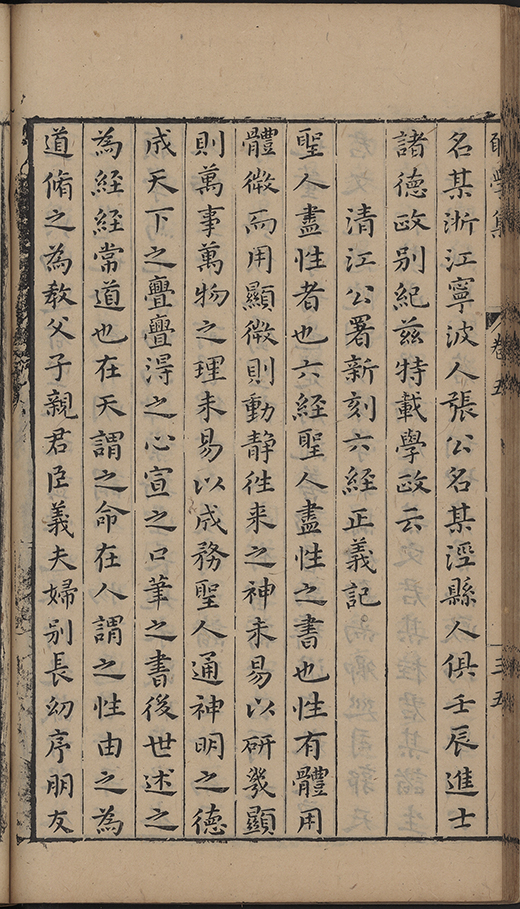 學集
卷五
三五
名某浙江寧波人張公名某涇縣人俱壬辰進士
諸德政别紀兹特載學政云
清江公署新刻六經正義記
聖人盡性者也六經聖人盡性之書也性有體用
體微而用顯微則動静徃来之神未易以研幾顯
則萬事萬物之理未易以成務聖人通神明之德
成天下之亹亹淂之心宣之口筆之書後世述之
為經經常道也在天謂之命在人謂之性由之為
道脩之為教父子親君臣義夫婦别長幼序朋友